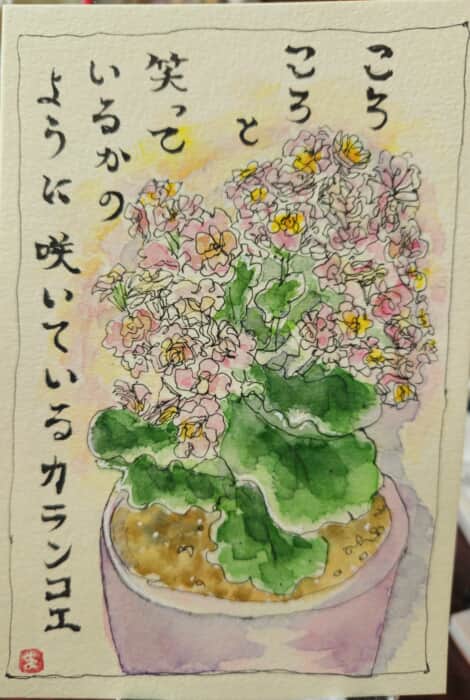 ころ
ころ
と
笑って
いるかの
ように咲いているカランコエ